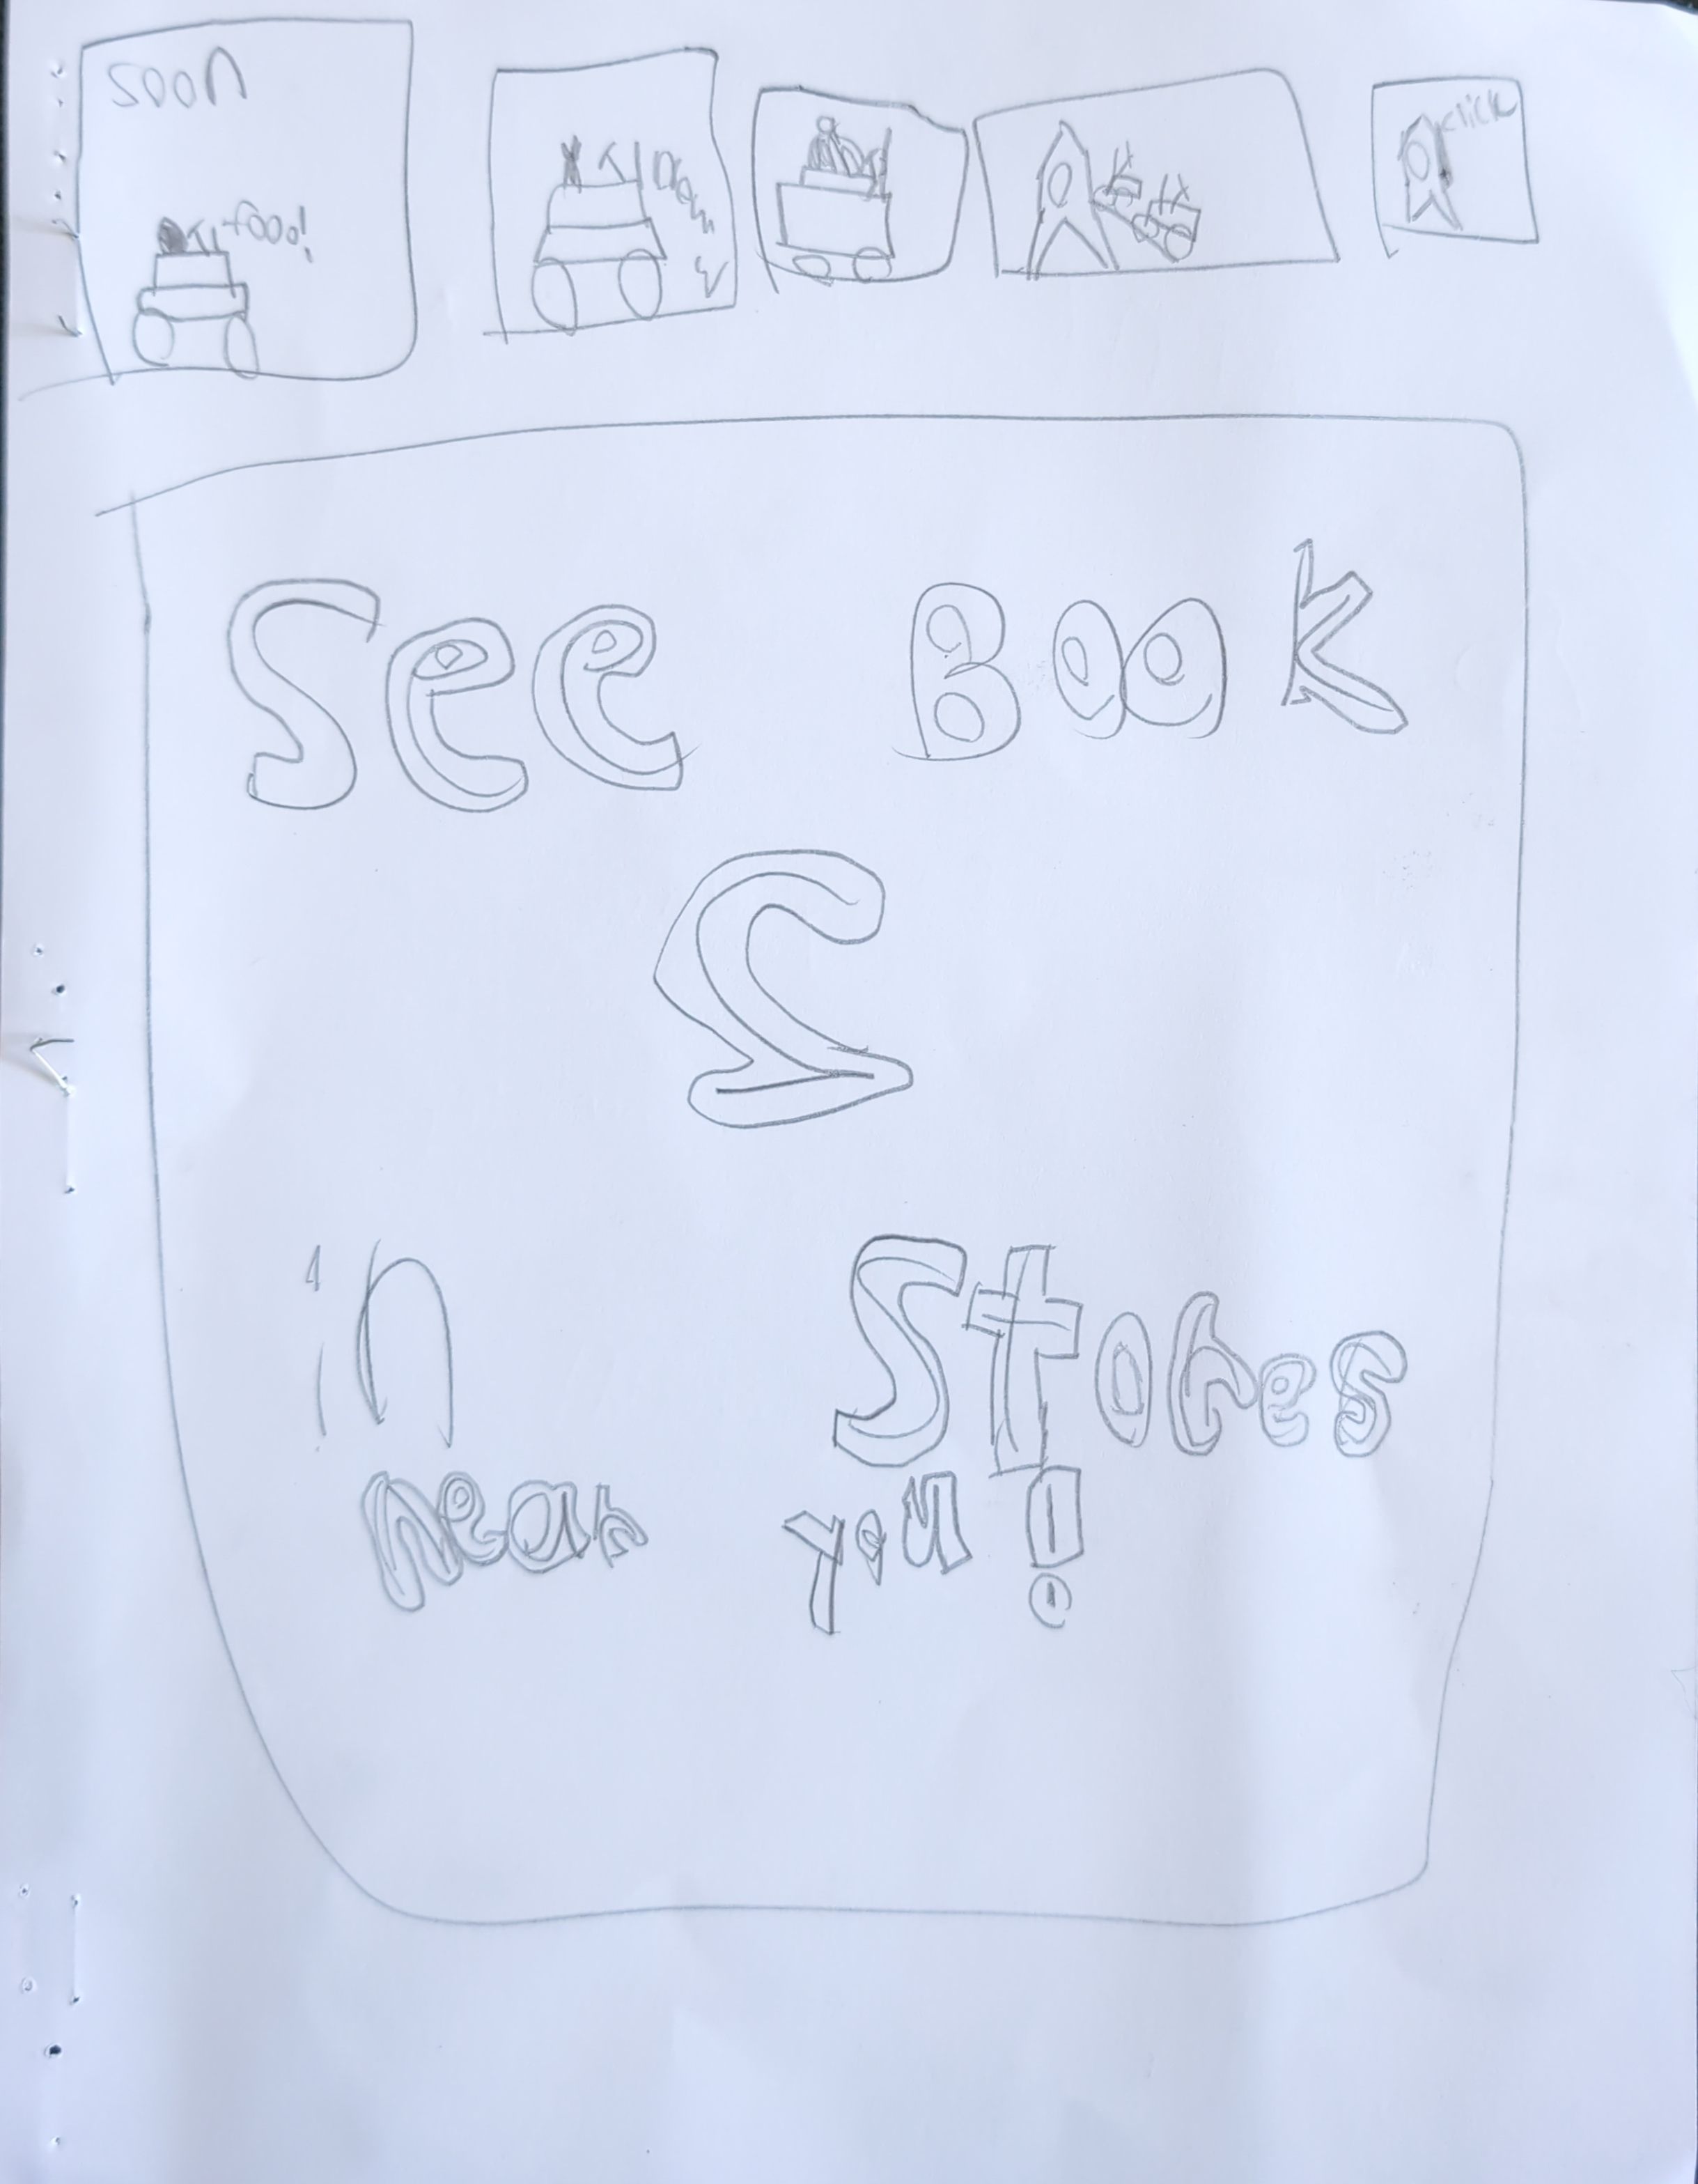 soon
food!
click
See Book
2
in Stores
near you!